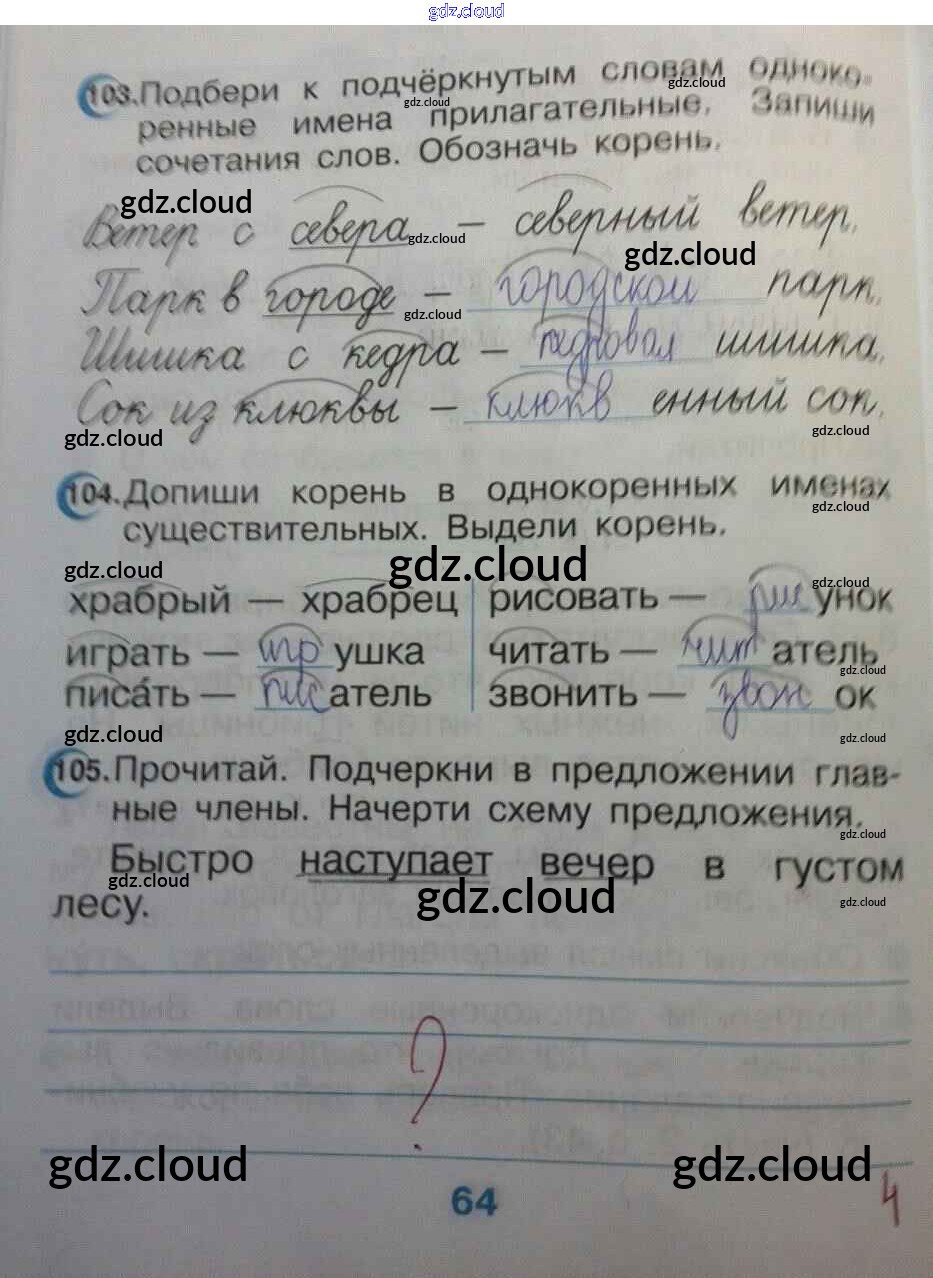 gdz.cloud
103. Подбери к подчёркнутым словам одноко-
gdz.cloud gdz.cloud
ренные имена прилагательные. Запиши
сочетания слов. Обозначь корень.
gdz.cloud
Ветер с севера – северный ветер.
gdz.cloud gdz.cloud
Парк в городе – городской парк.
gdz.cloud
Шишка с кедра – кедровая шишка.
Сок из клюквы – клюкв енный сок.
gdz.cloud gdz.cloud
104. Допиши корень в однокоренных именах
gdz.cloud
существительных. Выдели корень.
gdz.cloud gdz.cloud gdz.cloud
храбрый — храбрец рисовать — рисунок
играть — игр ушка читать — читатель
gdz.cloud
писа́ть — писатель звонить — звон ок
gdz.cloud gdz.cloud
105. Прочитай. Подчеркни в предложении глав-
ные члены. Начерти схему предложения.
gdz.cloud
Быстро наступает вечер в густом
gdz.cloud gdz.cloud gdz.cloud
лесу.
?
gdz.cloud gdz.cloud
64
4